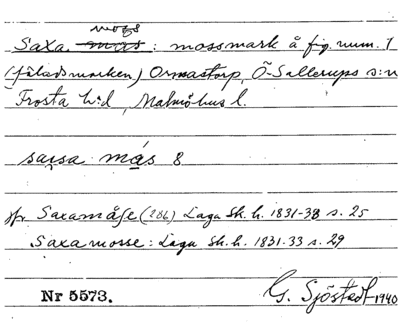 moss
Saxa mas: mossmark å fig. num. 1
(fäladsmarken) Ormastorp, Ö-Sallerups s:n
Frosta h:d, Malmöhus l.
saksa mås 8
jfr Saxamåse (286) Laga Sk. h. 1831-38 s. 25
Saxamosse: Laga Sk. h. 1831-33 s. 29
Nr 5573. G. Sjöstedt 1940